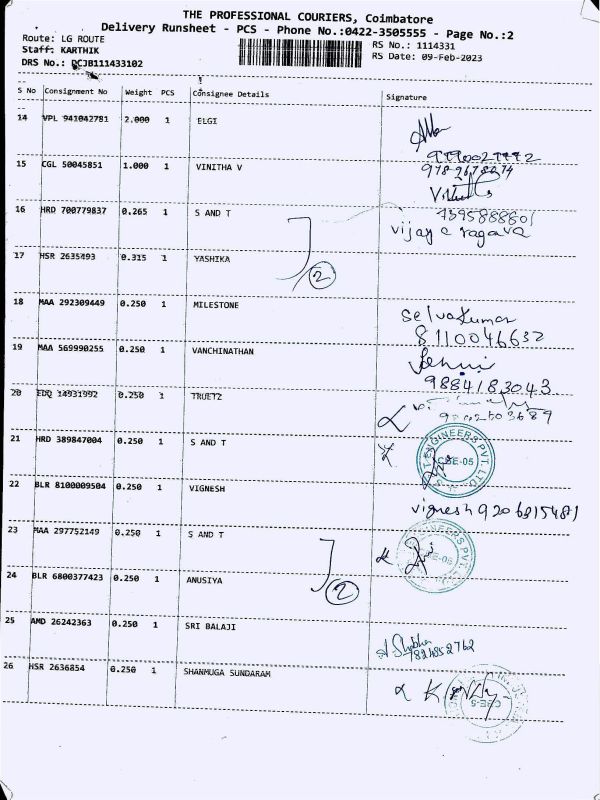 THE PROFESSIONAL COURIERS, Coimbatore
Delivery Runsheet - PCS - Phone No.:0422-3505555 - Page No.:2
Route: LG ROUTE
RS No.: 1114331
Staff: KARTHIK
RS Date: 09-Feb-2023
DRS No.: DCJB111433102
S No Consignment No Weight PCS Consignee Details Signature
14 VPL 941042781 2.000 1 ELGI
15 CGL 50045851 1.000 1 VINITHA V
16 HRD 700779837 0.265 1 S AND T
7395888801
vijay a ragava
17 HSR 2635493 0.315 1 YASHIKA
2
18 MAA 292309449 0.250 1 MILESTONE
Selvakumar
8110046632
19 MAA 569990255 0.250 1 VANCHINATHAN
9884183043
20 EDQ 14931992 0.250 1 TRUETZ
21 HRD 389847004 0.250 1 S AND T
ENGINEERS PVT. LTD
CBE-05
22 BLR 8100009504 0.250 1 VIGNESH
vignesh 9206815481
23 MAA 297752149 0.250 1 S AND T
24 BLR 6800377423 0.250 1 ANUSIYA
2
25 AMD 26242363 0.250 1 SRI BALAJI
26 HSR 2636854 0.250 1 SHANMUGA SUNDARAM